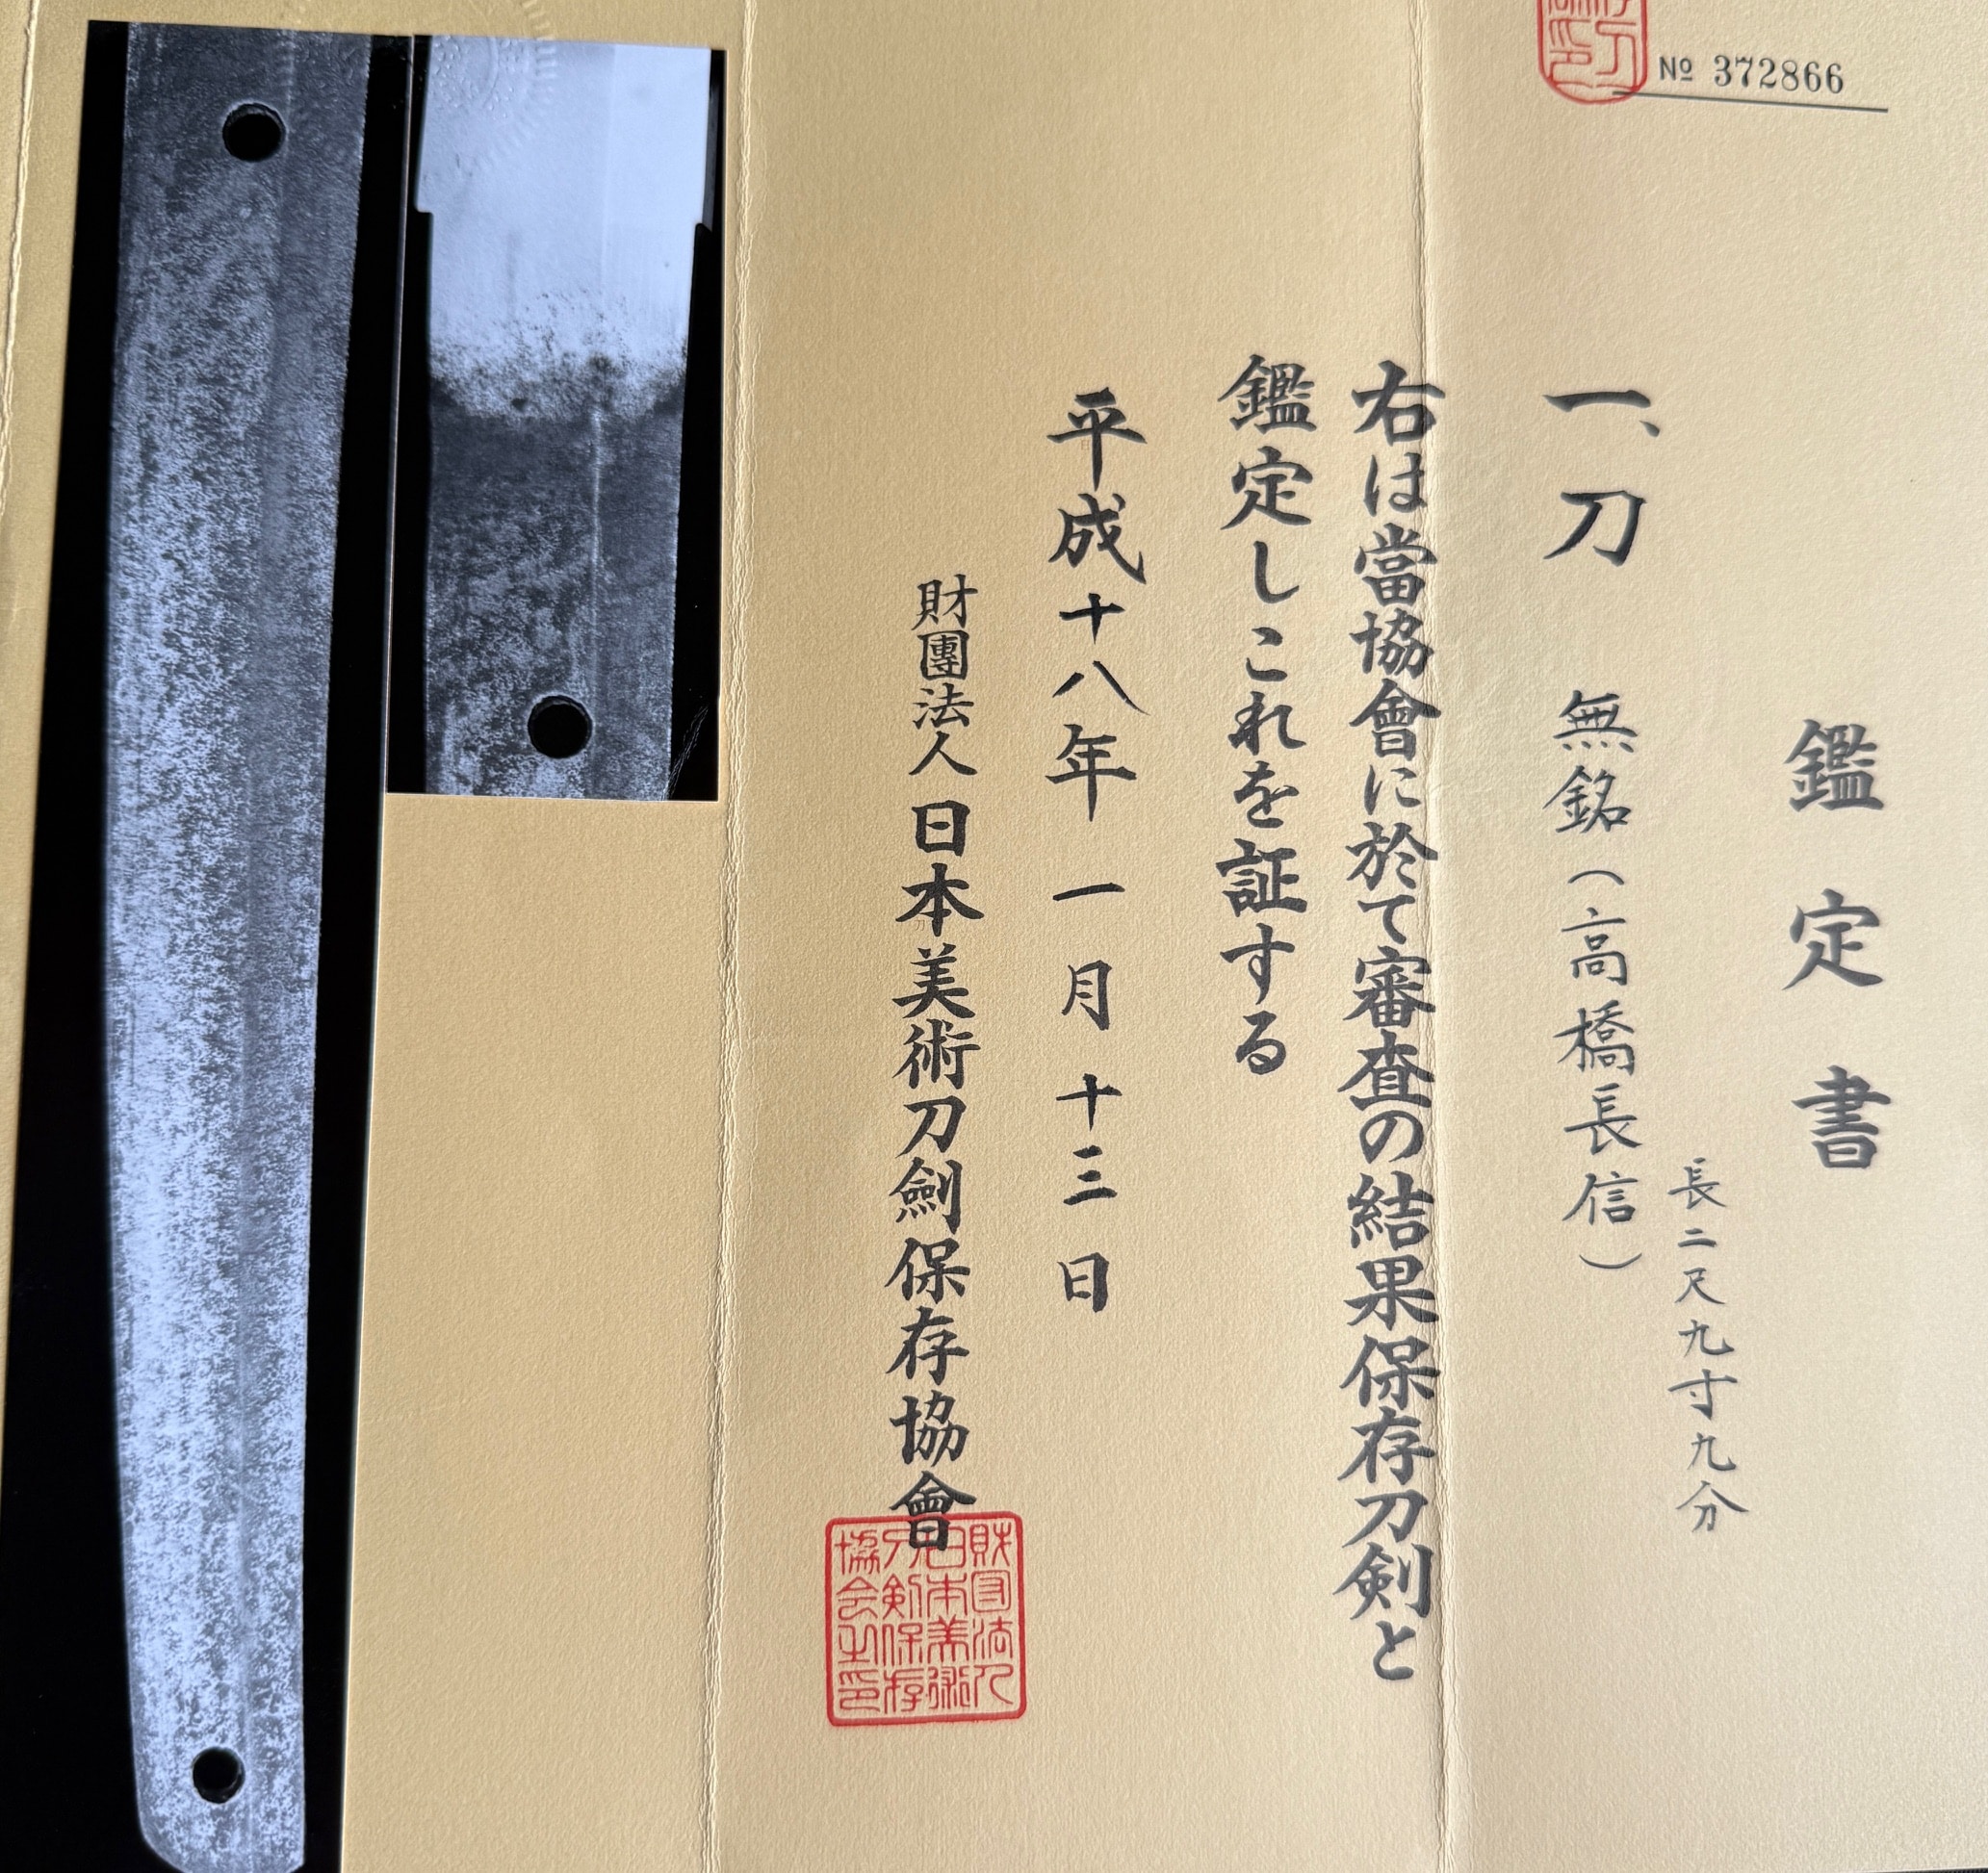 No 372866
鑑定書
長二尺九寸九分
一、刀 無銘(高橋長信)
右は當協會に於て審査の結果保存刀剣と
鑑定しこれを証する
平成十八年一月十三日
財團法人日本美術刀劍保存協會
財団法人
日本美術
刀剣保存
協会之印